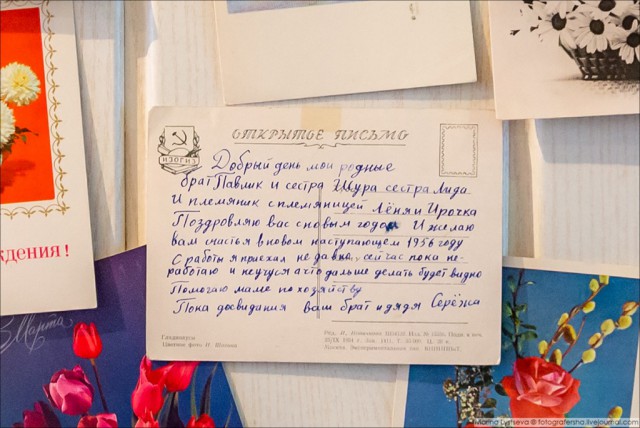 ИЗОГИЗ
ОТКРЫТОЕ ПИСЬМО
Добрый день мои родные
брат Павлик и сестра Шура сестра Лида
И племянник с племяницей Лёня и Ирочка
Поздровляю вас с новым годом И желаю
вам счастья в новом наступающем 1956 году
С работы я приехал не давно, сейчас пока не-
работаю и неучуся а что дальше делать будет видно
Помогаю маме по хозяйству
Пока досвидания ваш брат и дядя Серёжа
Гладиолусы
Цветное фото
ждения!
8 Марта
Marina Lystseva @ fotografersha.livejournal.com